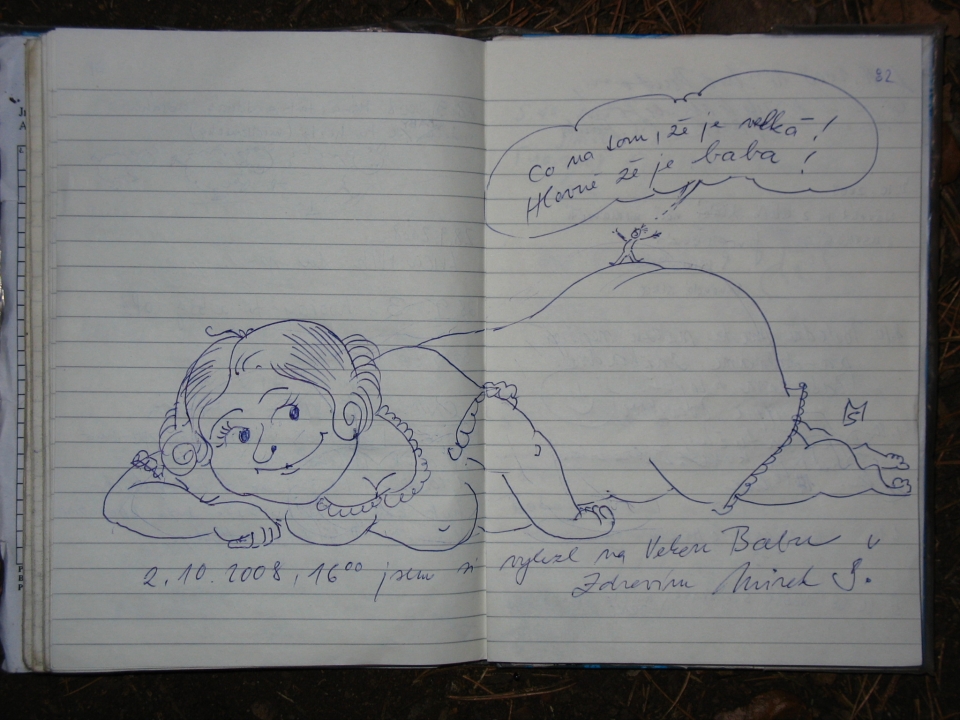 82
Co na tom, že je velká!
Hlavně že je baba!
2.10.2008, 16⁰⁰ jsem si vylezl na Velkou Babu
Zdravím Mirek Š.